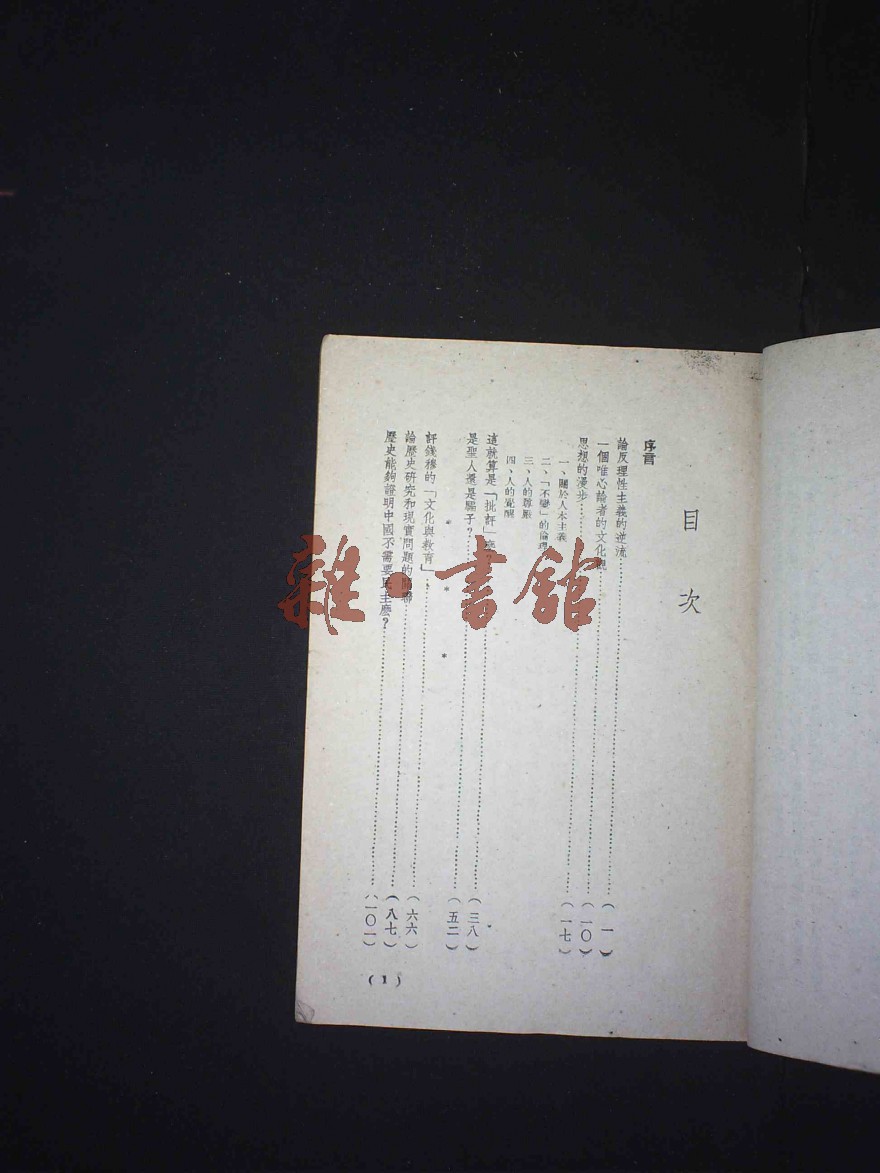 目次
序言
論反理性主義的逆流……(一)
一個唯心論者的文化觀……(一〇)
思想的漫步……(一七)
一、關於人本主義
二、「不變」的倫理
三、人的尊嚴
四、人的覺醒
這就算是「批評」……(三八)
是聖人還是騙子?……(五二)
* * *
評錢穆的「文化與教育」……(六六)
論歷史研究和現實問題的關聯……(八七)
歷史能夠證明中國不需要民主麽?……(一〇一)
(1)
雜·書館